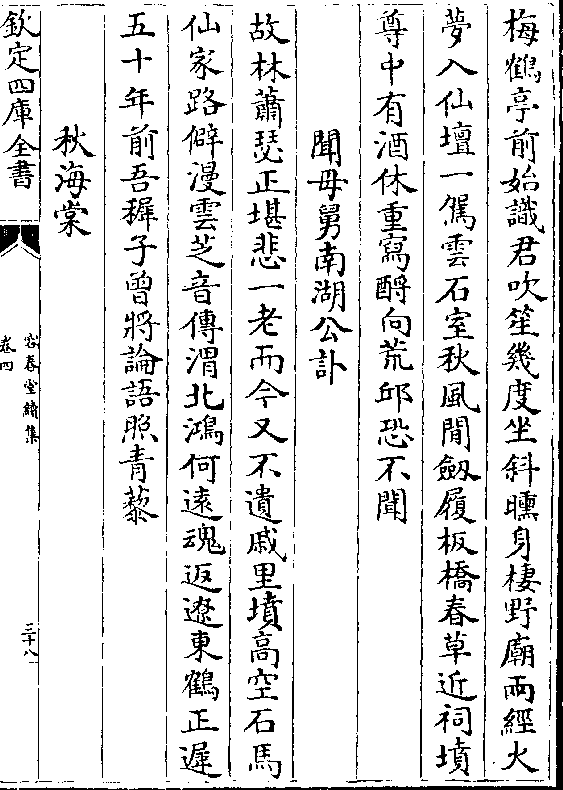 梅鶴亭前始識君吹笙幾度坐斜曛身棲野廟兩經火
夢入仙壇一駕雲石室秋風閒劔履板橋春草近祠墳
尊中有酒休重寫酹向荒邱恐不聞
聞母舅南湖公訃
故林蕭瑟正堪悲一老而今又不遺戚里墳高空石馬
仙家路僻漫雲芝音傳渭北鴻何遠魂返遼東鶴正遲
五十年前吾穉子曾將論語照青藜
秋海棠
欽定四庫全書
容春堂續集
卷四
三十八